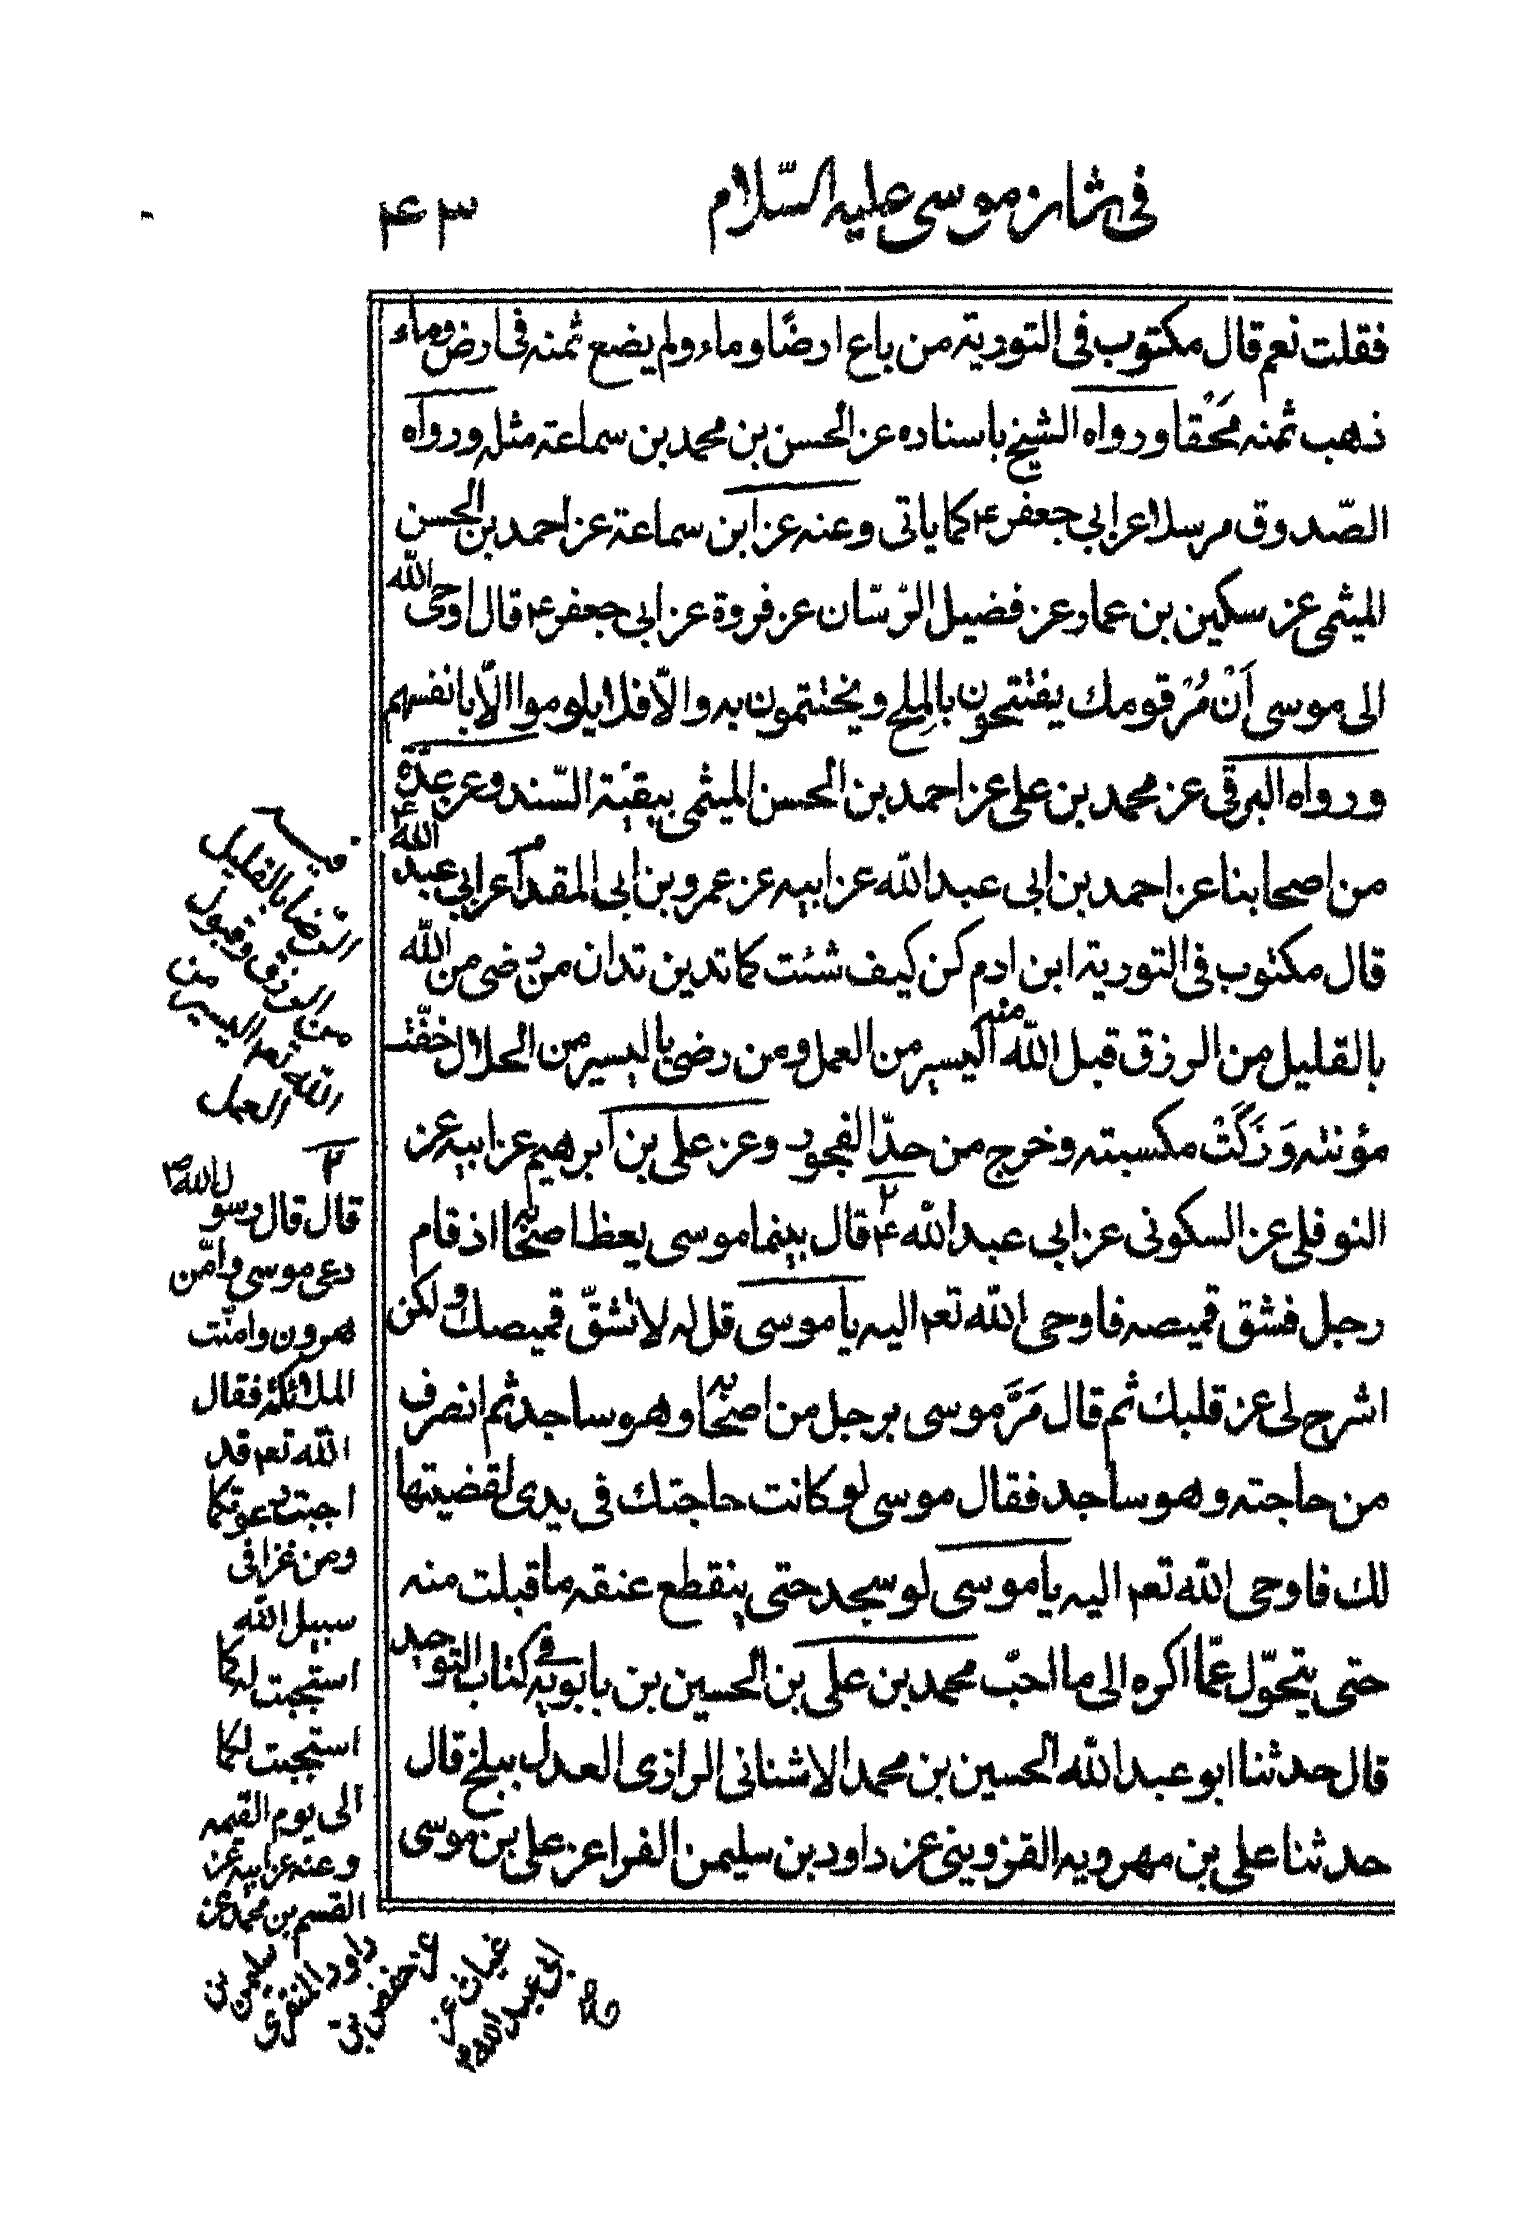 في شان موسى عليه السّلام ٤٣
فقلت نعم قال مكتوب فى التورية من باع ارضًا وماء ولم يضع ثمنه فى ارض وماء
ذهب ثمنه مَحْقا ورواه الشيخ باسناده عن الحسن بن محمد بن سماعة مثله ورواه
الصّدوق مرسلا عن ابي جعفر ع كما ياتى وعنه عن ابن سماعة عن احمد بن الحسن
الميثمى عن سكين بن عمار عن فضيل الرّسّان عن فروة عن ابى جعفر ع قال اوحى الله
الى موسى اَنْ مُرْ قومك يفتتحون بالمِلح ويختتمون به والّا فلا يلوموا الّا بانفسهم
ورواه البرقى عن محمد بن على عن احمد بن الحسن الميثمى ببقيّة السّند وعن عدّة
من اصحابنا عن احمد بن ابى عبد الله عن ابيه عن عمرو بن ابى المقدام عن ابي عبد الله ع
قال مكتوب فى التورية ابن ادم كن كيف شئت كما تدين تدان من رضى من الله
بالقليل من الرزق قبل الله منه اليسير من العمل ومن رضى باليسير من الحلال خفّت
مؤنته وَزَكَتْ مكسبته وخرج من حدّ الفجور وعن على بن ابرهيم عن ابيه عن
النوفلى عن السكونى عن ابى عبد الله ع ٢ قال بينما موسى يعظ اصحابه اذ قام
رجل فشق قميصه فاوحى الله تعم اليه يا موسى قل له لا تشقّ قميصك ولكن
اشرح لى عن قلبك ثم قال مَرَّ موسى برجل من اصحابه وهو ساجد ثم انصرف
من حاجته وهو ساجد فقال موسى لو كانت حاجتك في يدى لقضيتها
لك فاوحى الله تعم اليه يا موسى لو سجد حتى ينقطع عنقه ما قبلت منه
حتى يتحوّل عمّا اكره الى ما احبّ محمد بن على بن الحسين بن بابويه فى كتاب التوحيد
قال حدثنا ابو عبد الله الحسين بن محمد الاشنانى الرازى العدل ببلخ قال
حدثنا على بن مهرويه القزوينى عن داود بن سليمن الفرا عن على بن موسى
الرضا بالقليل
من الرزق وقبول
الله تعم اليسير من
العمل
٢
قال قال رسول الله ص
دعى موسى وامّن
هرون وامّنت
الملائكة فقال
الله تعم قد
اجبت دعوتكما
ومن غزا فى
سبيل الله
استجبت له كما
استجبت لكما
الى يوم القيمه
وعنه عن ابيه عن
القسم بن محمد عن
سليمن بن
داود المنقرى
عن حفص بن
غياث عن
ابى عبد الله ع